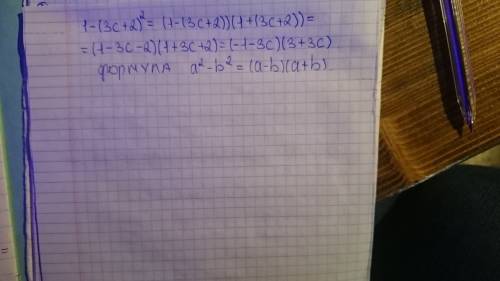 1-(3c+2)²=(1-(3c+2))(1+(3c+2))=
=(1-3c-2)(1+3c+2)=(-1-3c)(3+3c)
формула a²-b²=(a-b)(a+b)